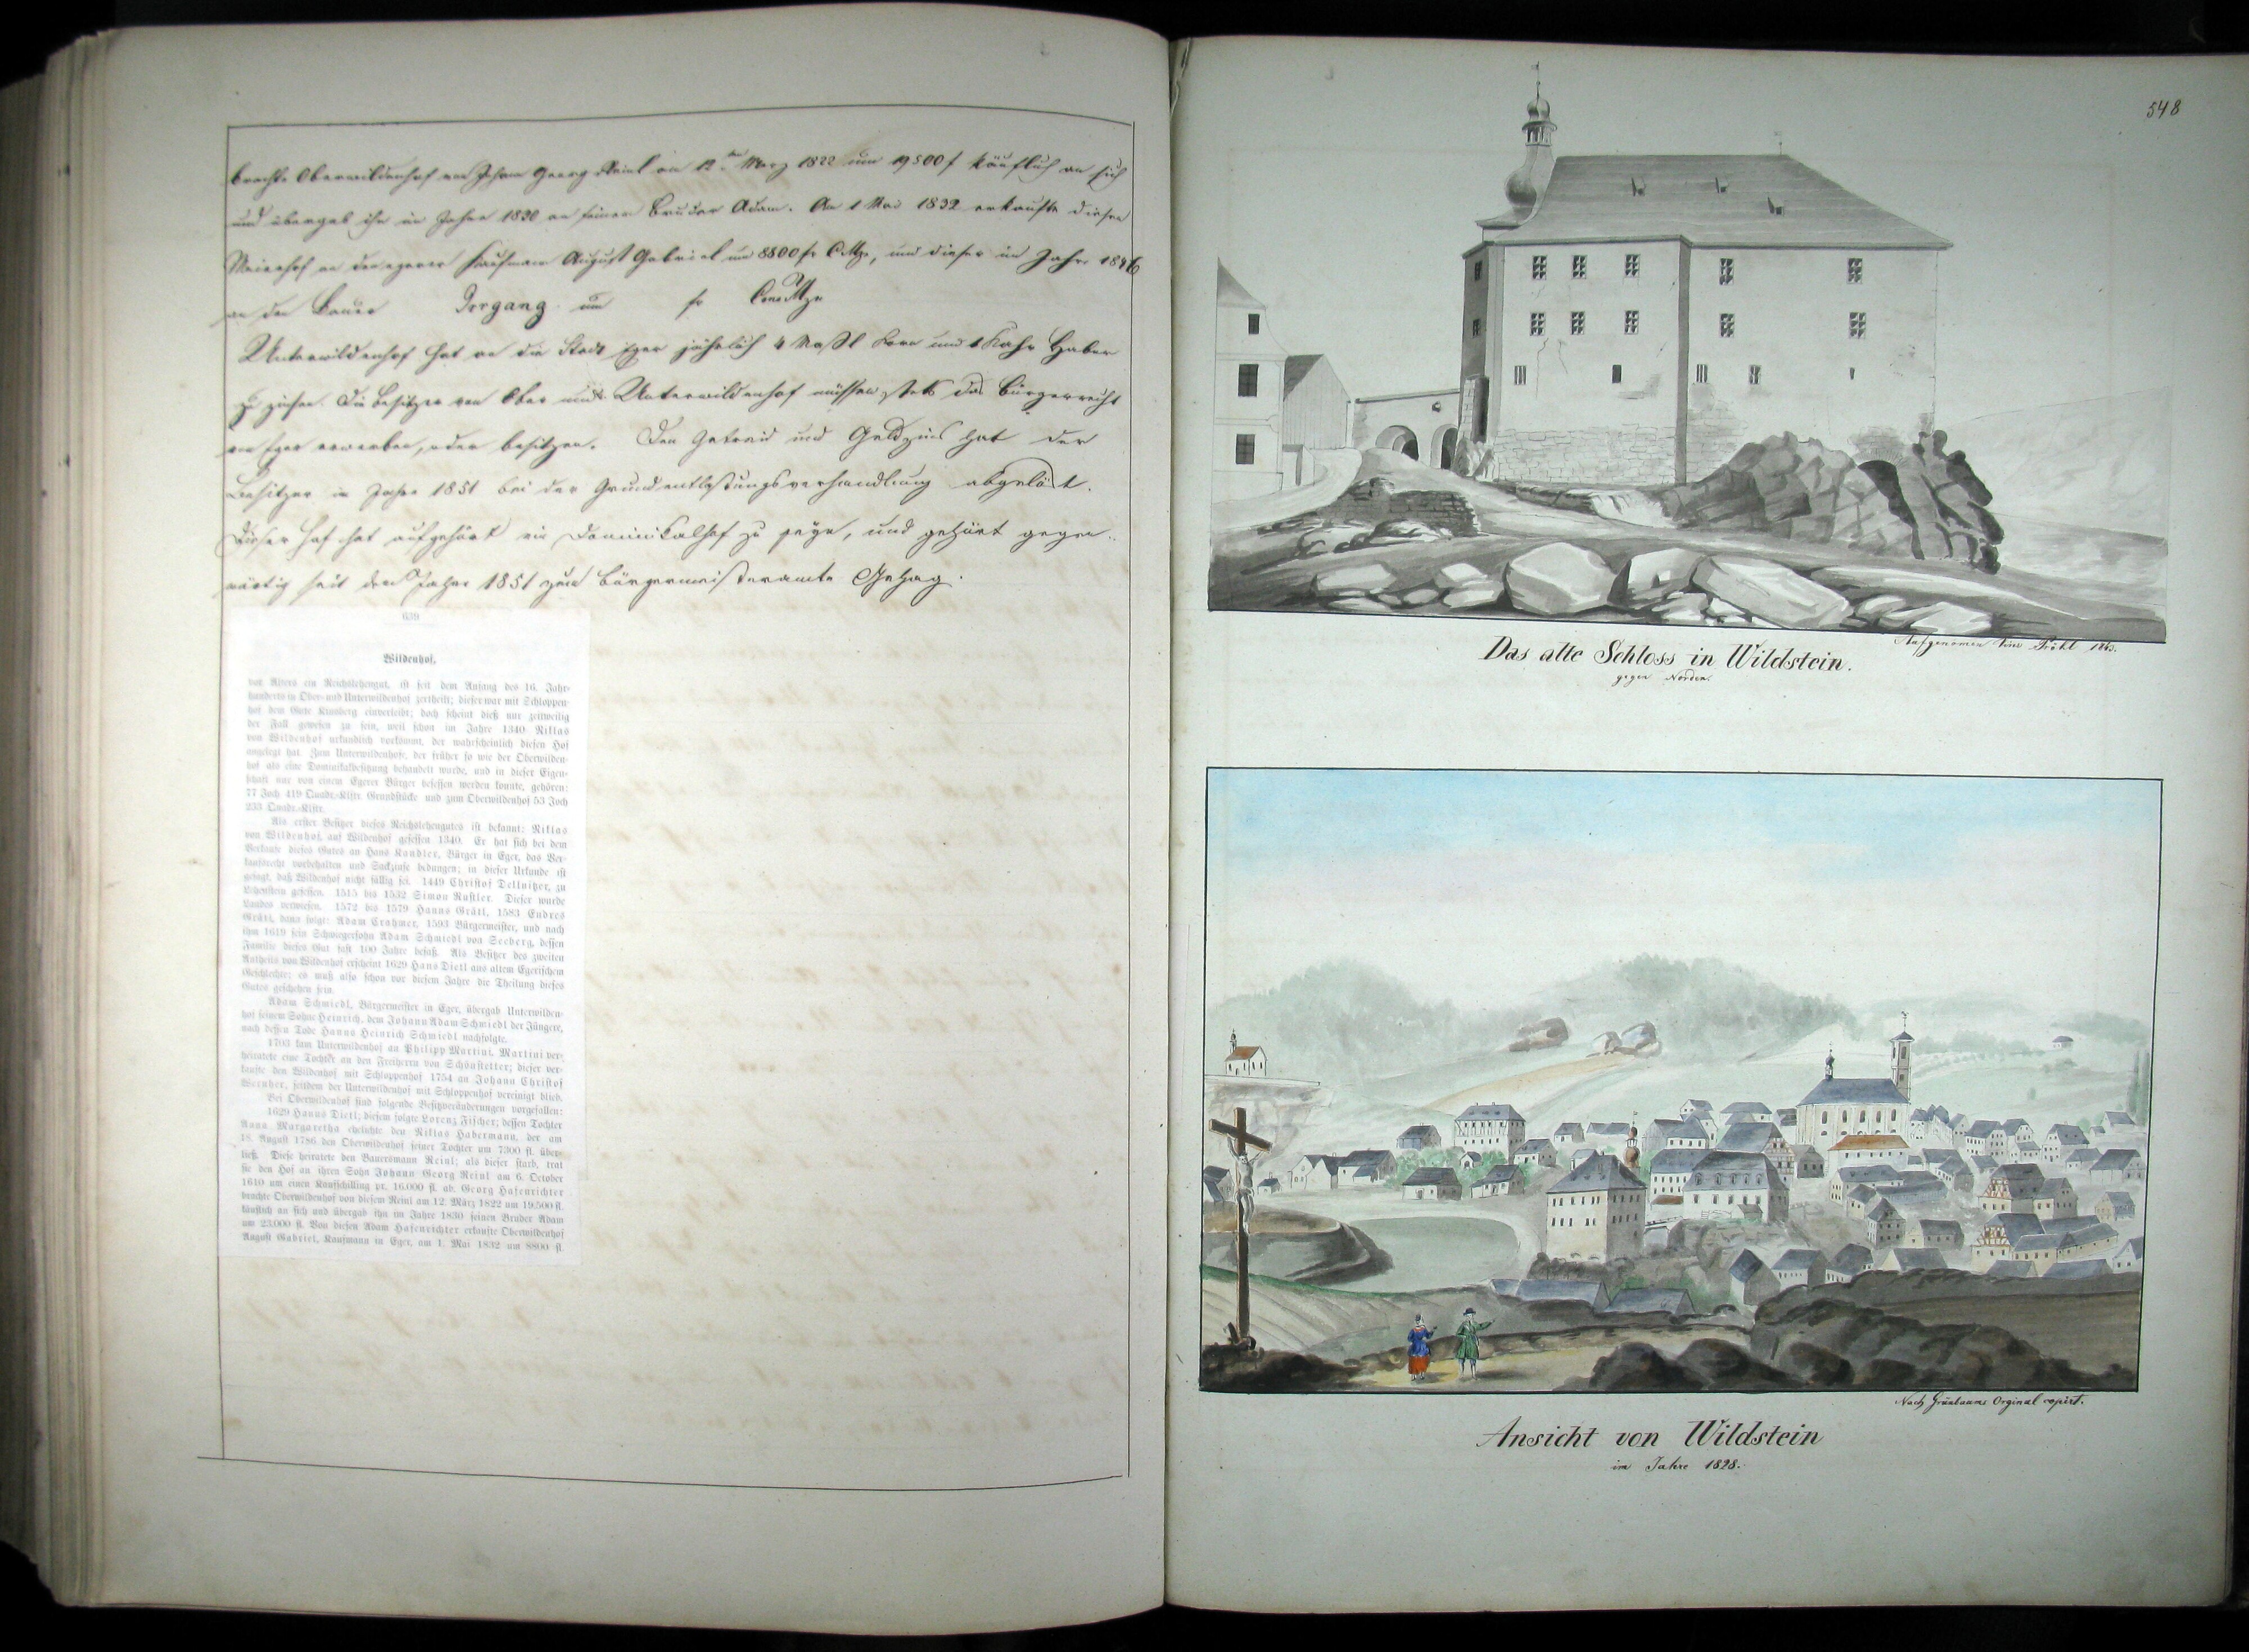 brachte Oberwildenhof von Johann Georg Reinl am 12ten März 1822 um 19500 f käuflich an sich
und übergab ihn im Jahre 1830 an seinen Bruder Adam. Am 1 Mai 1832 verkaufte diesen
Meierhof an den egerer Kaufmann August Gabriel um 8800 fr C.Mze, und dieser im Jahre 1846
an den Bauer Irrgang um fr Con Mze
Unterwildenhof hat an die Stadt Eger jährlich 4 Maßl Korn und 1 Kahr Haber
zu zinsen. Die Besitzer von Ober und Unterwildenhof müssen stets das Bürgerrecht
von Eger erwerben, oder besitzen. Den Getreid und Geldzins hat der
Besitzer im Jahre 1851 bei der Grundentlastungsverhandlung abgelöst.
Dieser Hof hat aufgehört ein Dominikalhof zu seyn, und gehört gegen-
wärtig seit dem Jahre 1851 zum Bürgermeisteramte Gehag.
639
Wildenhof,
vor Alters ein Reichslehengut, ist seit dem Anfang des 16. Jahr-
hunderts in Ober- und Unterwildenhof zertheilt; dieser war mit Schloppen-
hof dem Gute Kinsberg einverleibt; doch scheint dieß nur zeitweilig
der Fall gewesen zu sein, weil schon im Jahre 1340 Niklas
von Wildenhof urkundlich vorkommt, der wahrscheinlich diesen Hof
angelegt hat. Zum Unterwildenhofe, der früher so wie der Oberwilden-
hof als eine Dominikalbesitzung behandelt wurde, und in dieser Eigen-
schaft nur von einem Egerer Bürger besessen werden konnte, gehören:
77 Joch 419 Quadr.-Klftr. Grundstücke und zum Oberwildenhof 53 Joch
233 Quadr.-Klftr.
Als erster Besitzer dieses Reichslehengutes ist bekannt: Niklas
von Wildenhof, auf Wildenhof gesessen 1340. Er hat sich bei dem
Verkaufe dieses Gutes an Hans Kandler, Bürger in Eger, das Ver-
kaufsrecht vorbehalten und Sackzinse bedungen; in dieser Urkunde ist
gesagt, daß Wildenhof nicht fällig sei. 1449 Christof Dellnitzer, zu
gesessen. 1515 bis 1532 Simon Rustler. Dieser wurde
Landes verwiesen. 1572 bis 1579 Hanns Grätl, 1583 Endres
Grätl, dann folgt: Adam Crahmer, 1593 Bürgermeister, und nach
ihm 1619 sein Schwiegersohn Adam Schmiedl von Seeberg, dessen
Familie dieses Gut fast 100 Jahre besaß. Als Besitzer des zweiten
Antheils von Wildenhof erscheint 1629 Hans Dietl aus altem Egerischem
Geschlechte; es muß also schon vor diesem Jahre die Theilung dieses
Gutes geschehen sein.
Adam Schmiedl, Bürgermeister in Eger, übergab Unterwilden-
hof seinem Sohne Heinrich, dem Johann Adam Schmiedl der Jüngere,
nach dessen Tode Hanns Heinrich Schmiedl nachfolgte.
1703 kam Unterwildenhof an Philipp Martini. Martini ver-
heiratete eine Tochter an den Freiherrn von Schönstetter; dieser ver-
kaufte den Wildenhof mit Schloppenhof 1754 an Johann Christof
Wernher, seitdem der Unterwildenhof mit Schloppenhof vereinigt blieb.
Bei Oberwildenhof sind folgende Besitzveränderungen vorgefallen:
1629 Hanns Dietl; diesem folgte Lorenz Fischer; dessen Tochter
Anna Margaretha ehelichte den Niklas Habermann, der am
18. August 1786 den Oberwildenhof seiner Tochter um 7300 fl. über-
ließ. Diese heiratete den Bauersmann Reinl; als dieser starb, trat
sie den Hof an ihren Sohn Johann Georg Reinl am 6. October
1810 um einen Kaufschilling pr. 16.000 fl. ab. Georg Hafenrichter
brachte Oberwildenhof von diesem Reinl am 12. März 1822 um 19.500 fl.
käuflich an sich und übergab ihn im Jahre 1830 seinen Bruder Adam
um 23.000 fl. Von diesen Adam Hafenrichter erkaufte Oberwildenhof
August Gabriel, Kaufmann in Eger, am 1. Mai 1832 um 8800 fl.
548
Aufgenomen von Pröhl 1863.
Das alte Schloss in Wildstein.
gegen Norden.
Nach Grünbaums Orginal copirt.
Ansicht von Wildstein
im Jahre 1828.